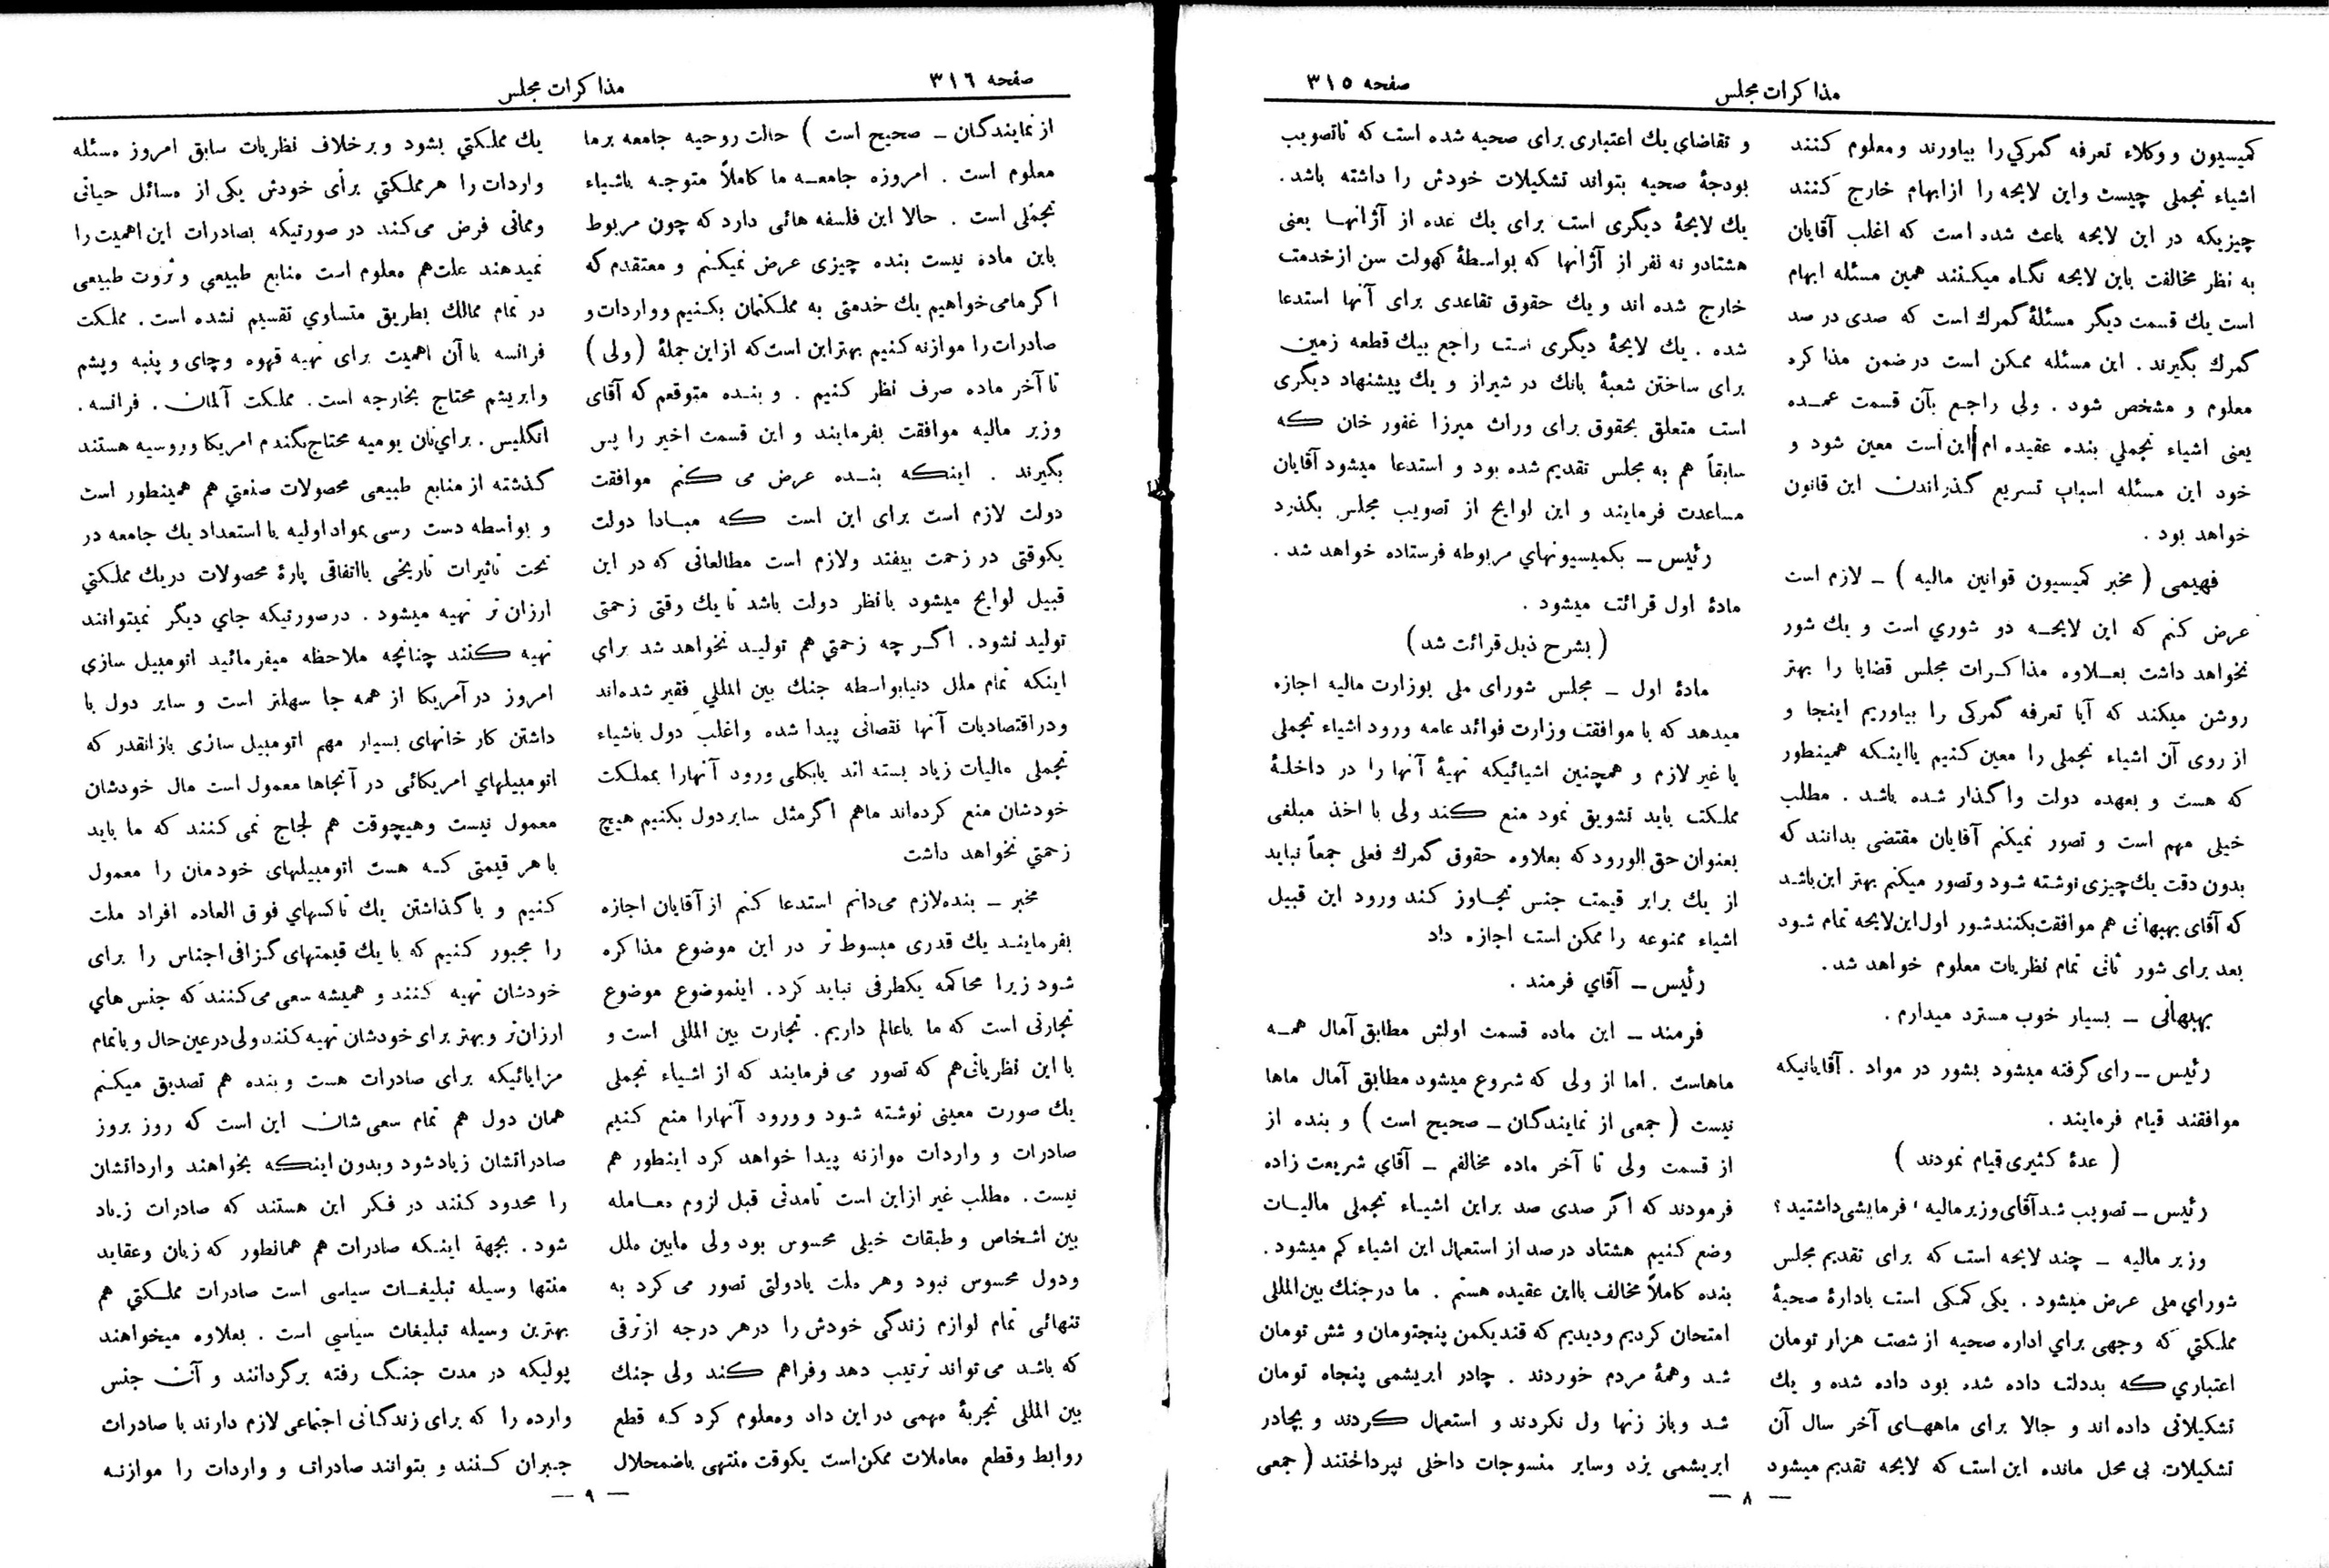 مذاکرات مجلس
صفحه ۳۱۵
کمیسیون و وکلاء تعرفه گمرکي را بیاورند و معلوم کنند
اشیاء تجملی چیست و این لایحه را از ابهام خارج کنند
چیزیکه در این لایحه باعث شده است که اغلب آقایان
به نظر مخالفت باین لایحه نگاه میکنند همین مسئله ابهام
است یك قسمت دیگر مسئلهٔ گمرك است که صدی در صد
گمرك بگیرند . این مسئله ممکن است در ضمن مذاکره
معلوم و مشخص شود . ولی راجع بآن قسمت عمده
یعنی اشیاء تجملي بنده عقیده ام این است معین شود و
خود این مسئله اسباب تسریع گذراندن این قانون
خواهد بود .
فهیمی ( مخبر کمیسیون قوانین مالیه ) ـ لازم است
عرض کنم که این لایحه دو شوري است و یك شور
نخواهد داشت بعلاوه مذاکرات مجلس قضایا را بهتر
روشن میکند که آیا تعرفه گمرکی را بیاوریم اینجا و
از روی آن اشیاء تجملی را معین کنیم یا اینکه همینطور
که هست و بعهده دولت واگذار شده باشد . مطلب
خیلی مهم است و تصور نمیکنم آقایان مقتضی بدانند که
بدون دقت یك چیزی نوشته شود و تصور میکنم بهتر این باشد
که آقای بهبهانی هم موافقت بکنند شور اول این لایحه تمام شود
بعد برای شور ثانی تمام نظریات معلوم خواهد شد .
بهبهانی ـ بسیار خوب مسترد میدارم .
رئیس ـ رای گرفته میشود بشور در مواد . آقایانیکه
موافقند قیام فرمایند .
( عدهٔ کثیری قیام نمودند )
رئیس ـ تصویب شد آقای وزیر مالیه ، فرمایشی داشتید ؟
وزیر مالیه ـ چند لایحه است که برای تقدیم مجلس
شوراي ملی عرض میشود . یکی کمکی است بادارهٔ صحیهٔ
مملکتي که وجهی براي اداره صحیه از شصت هزار تومان
اعتباري که بدولت داده شده بود داده شده و یك
تشکیلاتی داده اند و حالا برای ماههای آخر سال آن
تشکیلات بی محل مانده این است که لایحه تقدیم میشود
و تقاضاي یك اعتباری برای صحیه شده است که تا تصویب
بودجهٔ صحیه بتواند تشکیلات خودش را داشته باشد .
یك لایحهٔ دیگری است برای یك عده از آژانها یعنی
هشتاد و نه نفر از آژانها که بواسطهٔ کهولت سن از خدمت
خارج شده اند و یك حقوق تقاعدی برای آنها استدعا
شده . یك لایحهٔ دیگری است راجع بیك قطعه زمین
برای ساختن شعبهٔ بانك در شیراز و یك پیشنهاد دیگری
است متعلق بحقوق برای وراث میرزا غفور خان که
سابقاً هم به مجلس تقدیم شده بود و استدعا میشود آقایان
مساعدت فرمایند و این لوایح از تصویب مجلس بگذرد
رئیس ـ بکمیسیونهاي مربوطه فرستاده خواهد شد .
مادهٔ اول قرائت میشود .
( بشرح ذیل قرائت شد )
مادهٔ اول ـ مجلس شورای ملی بوزارت مالیه اجازه
میدهد که با موافقت وزارت فوائد عامه ورود اشیاء تجملی
یا غیر لازم و همچنین اشیائیکه تهیهٔ آنها را در داخلهٔ
مملکت باید تشویق نمود منع کند ولی با اخذ مبلغی
بعنوان حق الورود که بعلاوه حقوق گمرك فعلی جمعاً نباید
از یك برابر قیمت جنس تجاوز کند ورود این قبیل
اشیاء ممنوعه را ممکن است اجازه داد
رئیس ـ آقاي فرمند .
فرمند ـ این ماده قسمت اولش مطابق آمال همه
ماهاست . اما از ولی که شروع میشود مطابق آمال ماها
نیست ( جمعی از نمایندگان ـ صحیح است ) و بنده از
از قسمت ولی تا آخر ماده مخالفم ـ آقاي شریعت زاده
فرمودند که اگر صدی صد براین اشیاء تجملی مالیات
وضع کنیم هشتاد درصد از استعمال این اشیاء کم میشود .
بنده کاملاً مخالف با این عقیده هستم . ما در جنك بین المللی
امتحان کردیم و دیدیم که قند یکمن پنجتومان و شش تومان
شد و همهٔ مردم خوردند . چادر ابریشمی پنجاه تومان
شد و باز زنها ول نکردند و استعمال کردند و بچادر
ابریشمی یزد و سایر منسوجات داخلی نپرداختند ( جمعی
— ۸ —
صفحه ۳۱۶
مذاکرات مجلس
از نمایندگان ـ صحیح است ) حالت روحیه جامعه برما
معلوم است . امروزه جامعه ما کاملاً متوجه باشیاء
تجملی است . حالا این فلسفه هائی دارد که چون مربوط
باین ماده نیست بنده چیزی عرض نمیکنم و معتقدم که
اگر ما می خواهیم یك خدمتی به مملکتمان بکنیم و واردات و
صادرات را موازنه کنیم بهتر این است که از این جملهٔ ( ولی )
تا آخر ماده صرف نظر کنیم . و بنده متوقعم که آقای
وزیر مالیه موافقت بفرمایند و این قسمت اخیر را پس
بگیرند . اینکه بنده عرض می کنم موافقت
دولت لازم است برای این است که مبادا دولت
یکوقتی در زحمت بیفتد و لازم است مطالعاتی که در این
قبیل لوایح میشود با نظر دولت باشد تا یك وقتی زحمتی
تولید نشود . اگر چه زحمتي هم تولید نخواهد شد برای
اینکه تمام ملل دنیا بواسطه جنك بین المللي فقیر شده اند
و در اقتصادیات آنها نقصانی پیدا شده و اغلب دول باشیاء
تجملی مالیات زیاد بسته اند یا بکلی ورود آنهارا بمملکت
خودشان منع کرده اند ماهم اگر مثل سایر دول بکنیم هیچ
زحمتي نخواهد داشت
مخبر ـ بنده لازم می دانم استدعا کنم از آقایان اجازه
بفرمایند یك قدری مبسوط تر در این موضوع مذاکره
شود زیرا محاکمه یکطرفی نباید کرد . اینموضوع موضوع
تجارتی است که ما باعالم داریم . تجارت بین المللی است و
با این نظریاتی هم که تصور می فرمایند که از اشیاء تجملی
یك صورت معینی نوشته شود و ورود آنهارا منع کنیم
صادرات و واردات موازنه پیدا خواهد کرد اینطور هم
نیست . مطلب غیر از این است تا مدتی قبل لزوم معامله
بین اشخاص و طبقات خیلی محسوس بود ولی مابین ملل
و دول محسوس نبود و هر ملت یا دولتی تصور می کرد به
تنهائی تمام لوازم زندگی خودش را در هر درجه از ترقی
که باشد می تواند ترتیب دهد و فراهم کند ولی جنك
بین المللی تجربهٔ مهمی در این داد و معلوم کرد که قطع
روابط و قطع معاملات ممکن است یکوقت منتهی باضمحلال
یك مملکتي بشود و برخلاف نظریات سابق امروز مسئله
واردات را هر مملکتي برای خودش یکی از مسائل حیاتی
و مماتی فرض می کنند در صورتیکه بصادرات این اهمیت را
نمیدهند علت هم معلوم است منابع طبیعی و ثروت طبیعی
در تمام ممالك بطریق متساوي تقسیم نشده است . مملکت
فرانسه با آن اهمیت برای تهیه قهوه و چای و پنبه و پشم
و ابریشم محتاج بخارجه است . مملکت آلمان . فرانسه .
انگلیس . براي نان یومیه محتاج بگندم امریکا و روسیه هستند
گذشته از منابع طبیعی محصولات صنعتي هم همینطور است
و بواسطه دست رسی بمواد اولیه یا استعداد یك جامعه در
تحت تاثیرات تاریخی یا اتفاقی پارهٔ محصولات در یك مملکتي
ارزان تر تهیه میشود . در صورتیکه جاي دیگر نمیتوانند
تهیه کنند چنانچه ملاحظه میفرمائید اتومبیل سازی
امروز در آمریکا از همه جا سهلتر است و سایر دول با
داشتن کار خانهای بسیار مهم اتومبیل سازی باز انقدر که
اتومبیلهاي امریکائی در آنجاها معمول است مال خودشان
معمول نیست و هیچوقت هم لجاج نمی کنند که ما باید
با هر قیمتی که هست اتومبیلهای خودمان را معمول
کنیم و با گذاشتن یك تاکسهاي فوق العاده افراد ملت
را مجبور کنیم که با یك قیمتهای گزافی اجناس را برای
خودشان تهیه کنند و همیشه سعی می کنند که جنس هاي
ارزان تر و بهتر برای خودشان تهیه کنند ولی در عین حال و با تمام
مزایائیکه برای صادرات هست و بنده هم تصدیق میکنم
همان دول هم تمام سعی شان این است که روز بروز
صادراتشان زیاد شود و بدون اینکه بخواهند وارداتشان
را محدود کنند در فکر این هستند که صادرات زیاد
شود . بجهة اینکه صادرات هم همانطور که زبان و عقاید
منتها وسیله تبلیغات سیاسی است صادرات مملکتي هم
بهترین وسیله تبلیغات سیاسي است . بعلاوه میخواهند
پولیکه در مدت جنگ رفته برگردانند و آن جنس
وارده را که برای زندگانی اجتماعی لازم دارند با صادرات
جبران کنند و بتوانند صادرات و واردات را موازنه
— ۹ —